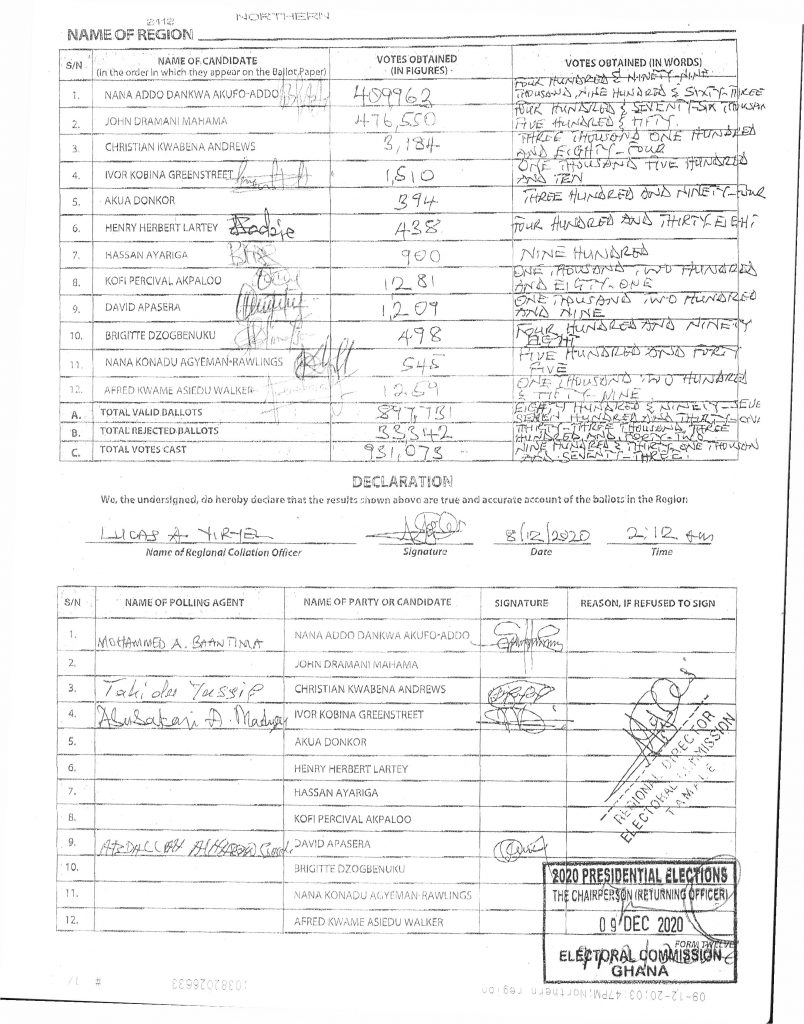 2112
NORTHERN
NAME OF REGION
S/N
NAME OF CANDIDATE
(in the order in which they appear on the Ballot Paper)
VOTES OBTAINED
(IN FIGURES)
VOTES OBTAINED (IN WORDS)
1. NANA ADDO DANKWA AKUFO-ADDO 409963 FOUR HUNDRED & NINETY-NINE
THOUSAND, NINE HUNDRED & SIXTY-THREE
2. JOHN DRAMANI MAHAMA 476,550 FOUR HUNDRED & SEVENTY-SIX THOUSAN
FIVE HUNDRED & FIFTY.
3. CHRISTIAN KWABENA ANDREWS 3,184 THREE THOUSAND ONE HUNDRED
AND EIGHTY-FOUR
4. IVOR KOBINA GREENSTREET 1,510 ONE THOUSAND FIVE HUNDRED
AND TEN
5. AKUA DONKOR 394 THREE HUNDRED AND NINETY-FOUR
6. HENRY HERBERT LARTEY 438 FOUR HUNDRED AND THIRTY-EIGHT
7. HASSAN AYARIGA 900 NINE HUNDRED
8. KOFI PERCIVAL AKPALOO 1281 ONE THOUSAND TWO HUNDRED
AND EIGTY-ONE
9. DAVID APASERA 1,209 ONE THOUSAND TWO HUNDRED
AND NINE
10. BRIGITTE DZOGBENUKU 498 FOUR HUNDRED AND NINETY
EIGHT
11. NANA KONADU AGYEMAN-RAWLINGS 545 FIVE HUNDRED AND FORTY
FIVE
12. AFRED KWAME ASIEDU WALKER 1259 ONE THOUSAND TWO HUNDRED
& FIFTY-NINE
A. TOTAL VALID BALLOTS 897,731 EIGHTY HUNDRED & NINETY-SEVE
SEVEN HUNDRED AND THIRTY-ONE
B. TOTAL REJECTED BALLOTS 33342 THIRTY-THREE THOUSAND, THREE
HUNDRED AND FORTY-TWO
C. TOTAL VOTES CAST 931,073 NINE HUNDRED & THIRTY ONE THOUSAN
AND SEVENTY-THREE.
DECLARATION
We, the undersigned, do hereby declare that the results shown above are true and accurate account of the ballots in the Region
LUCAS A YIRYEL 8/12/2020 2:12 am
Name of Regional Collation Officer Signature Date Time
S/N NAME OF POLLING AGENT NAME OF PARTY OR CANDIDATE SIGNATURE REASON, IF REFUSED TO SIGN
1. MOHAMMED A. BAANTIMA NANA ADDO DANKWA AKUFO-ADDO
2. JOHN DRAMANI MAHAMA
3. CHRISTIAN KWABENA ANDREWS
4. IVOR KOBINA GREENSTREET
5. AKUA DONKOR
6. HENRY HERBERT LARTEY
7. HASSAN AYARIGA
8. KOFI PERCIVAL AKPALOO
9. DAVID APASERA
10. BRIGITTE DZOGBENUKU
11. NANA KONADU AGYEMAN-RAWLINGS
12. AFRED KWAME ASIEDU WALKER
REGIONAL DIRECTOR
ELECTORAL COMMISSION
TAMALE
2020 PRESIDENTIAL ELECTIONS
THE CHAIRPERSON (RETURNING OFFICER)
09 DEC 2020
FORM TWELVE
ELECTORAL COMMISSION
GHANA
09-12-20;03:47PM;Northern region
1038202663З